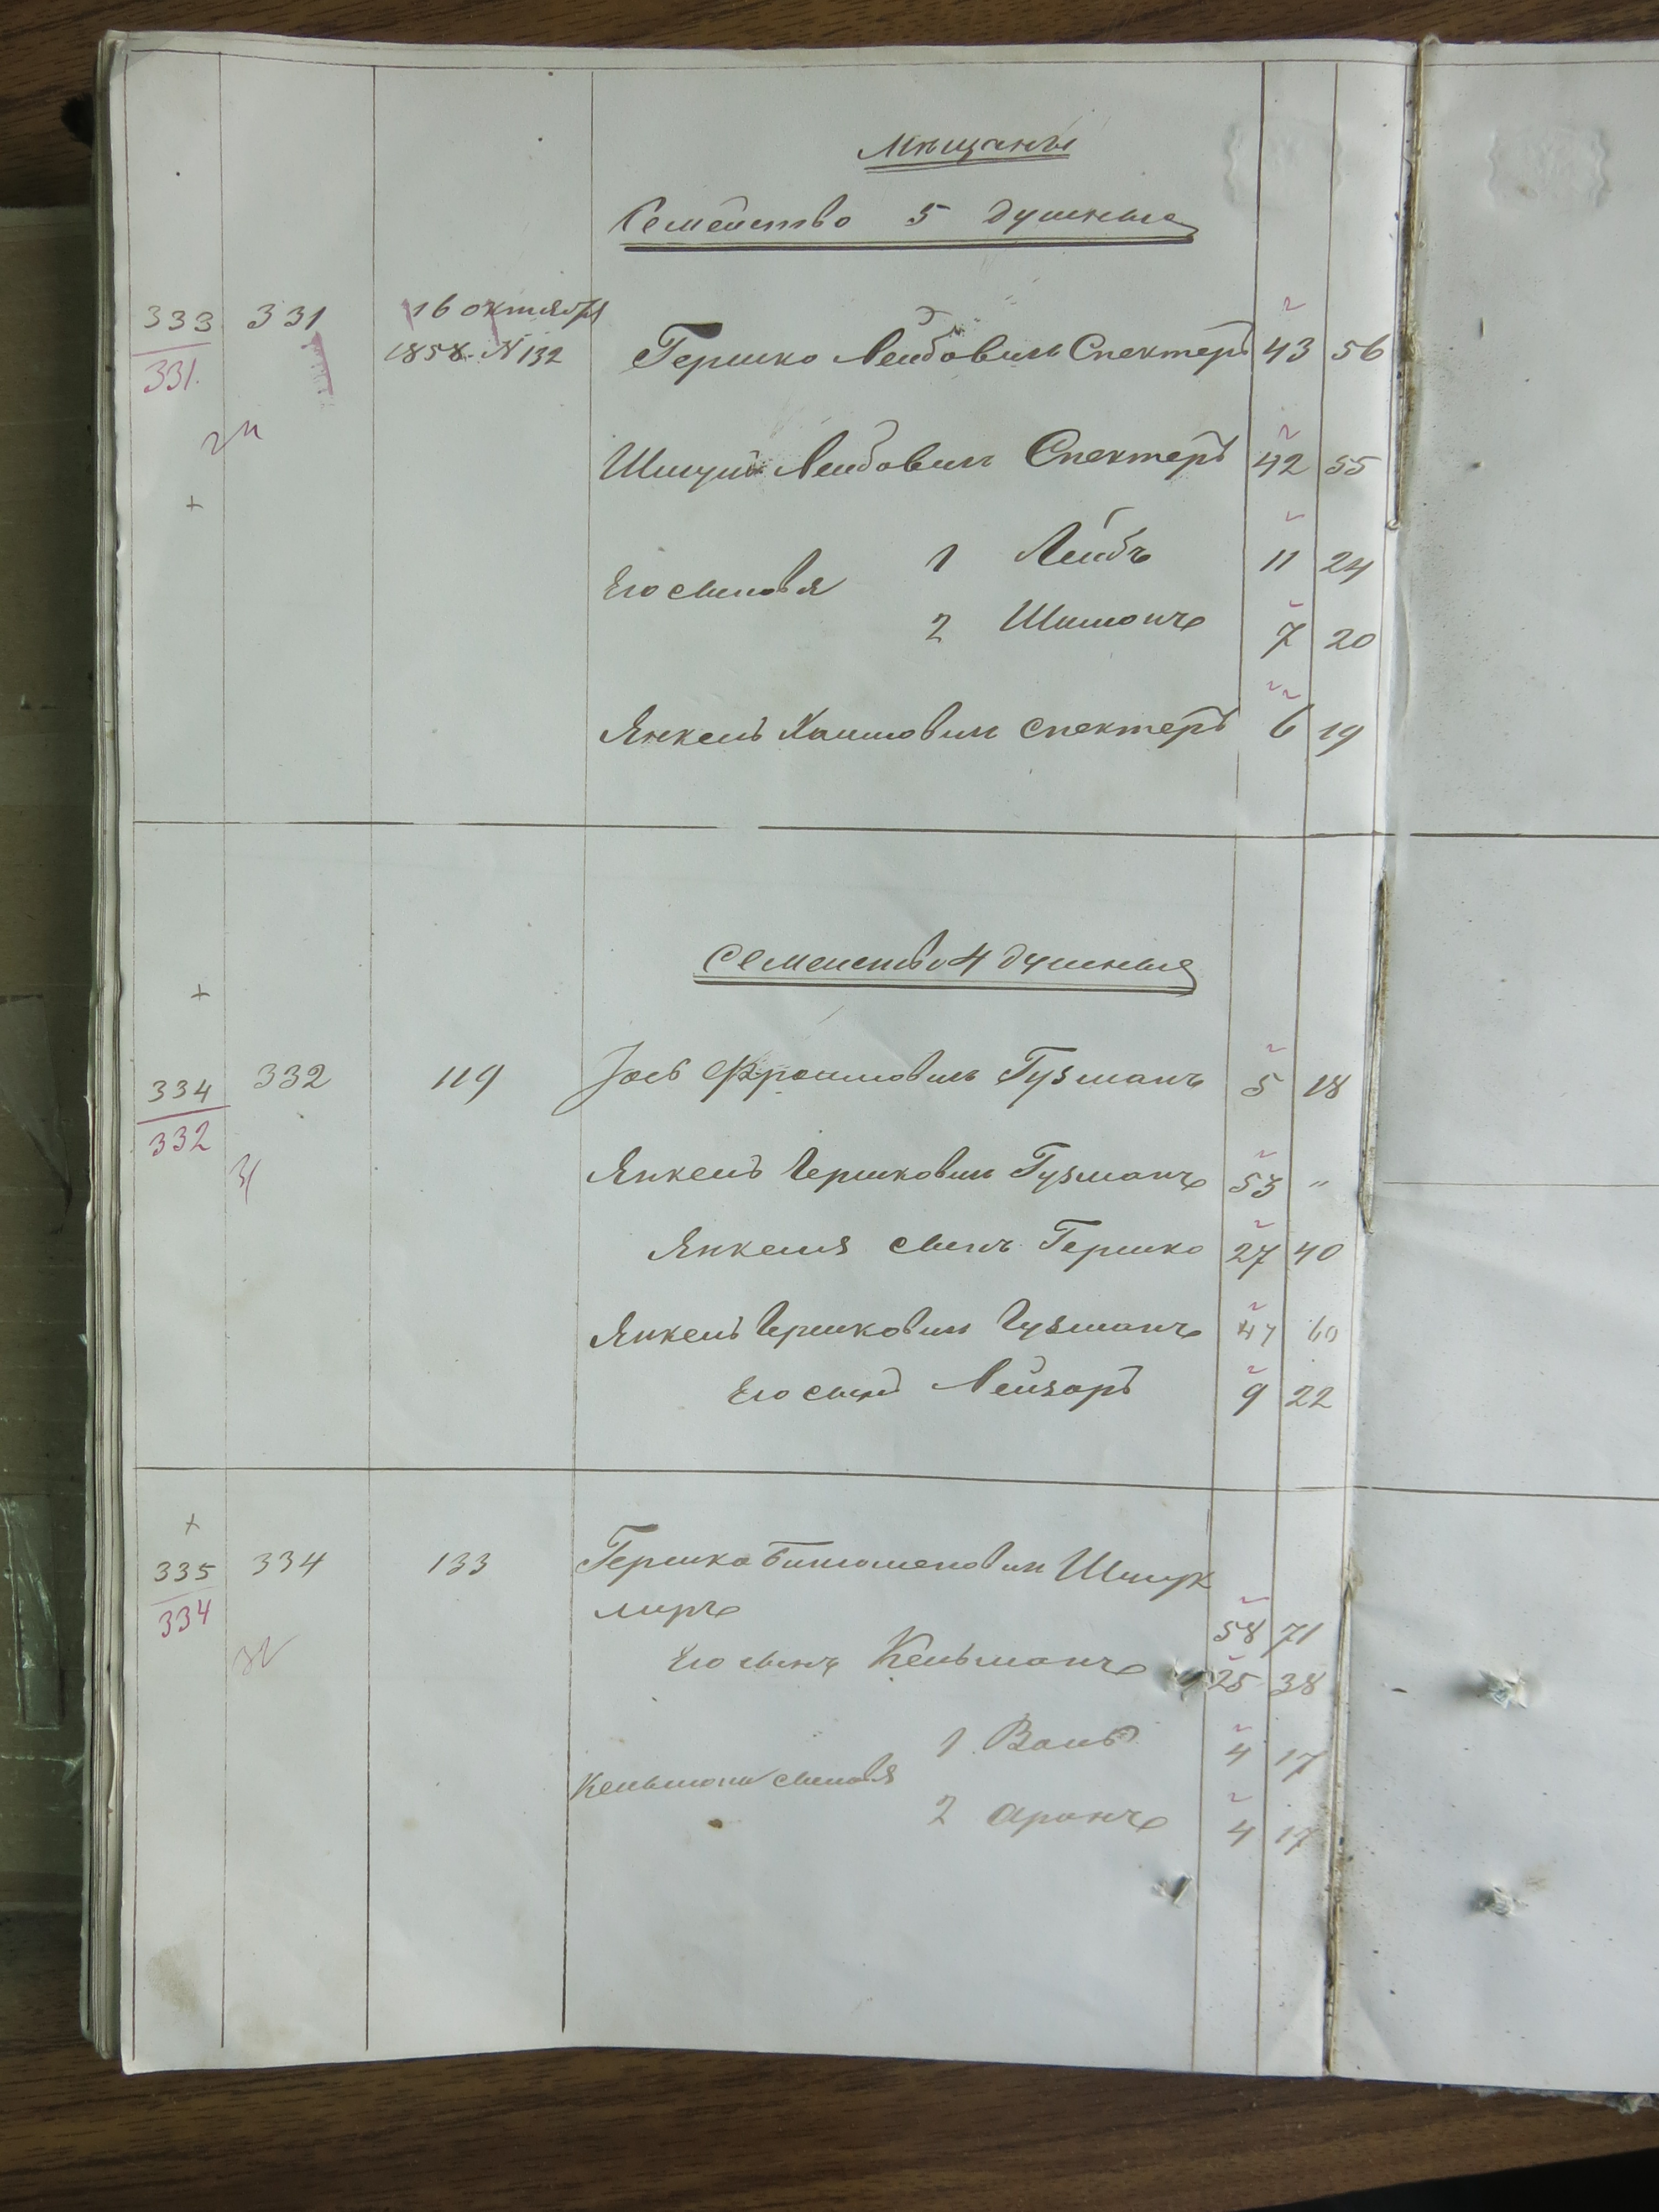 Мѣщаны
Семейство 5 душные
333 331 16 октября
331. 1858. N 132 Гершко Лейбовичъ Спектеръ 43 56
Лейбовичъ Спектеръ 42 55
+
1 Лейбъ 11 24
Его сыновья
2 Шимонъ 7 20
Янкель Хаимовичъ Спектеръ 6 19
Семейство 4 душные
+
334 332 119 Іось Фроимовичъ Гузманъ 5 18
332
Янкель Гершковичъ Гузманъ 53 "
Янкеля сынъ Гершко 27 40
Янкель Гершковичъ Гузманъ 47 60
Его сынъ Лейзоръ 9 22
+
335 334 133 Гершко
334 58 71
Его сынъ Кельманъ 25 38
1 4 17
Кельмана сыновья
2 Аронъ 4 17